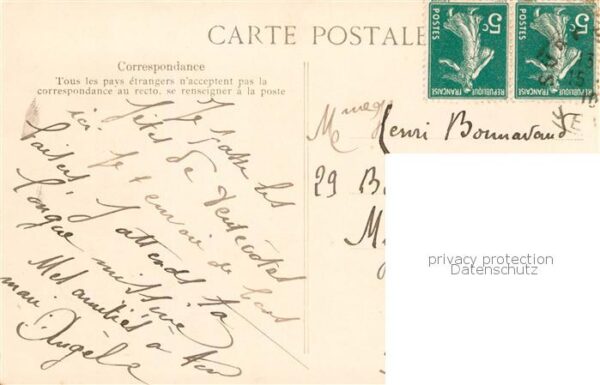 CARTE POSTALE
Correspondance
Tous les pays étrangers n'acceptent pas la
correspondance au recto, se renseigner à la poste
5c
POSTES
REPUBLIQUE FRANÇAISE
5c
POSTES
REPUBLIQUE FRANÇAISE
13
15
10
Je passe les
fêtes de Pentecôtes
ici je t'envoie de bons
baisers j'attends ta
longue missive
Mes amitiés à ton
mari Angèle
Henri Bonnavaud
29 B
M
privacy protection
Datenschutz